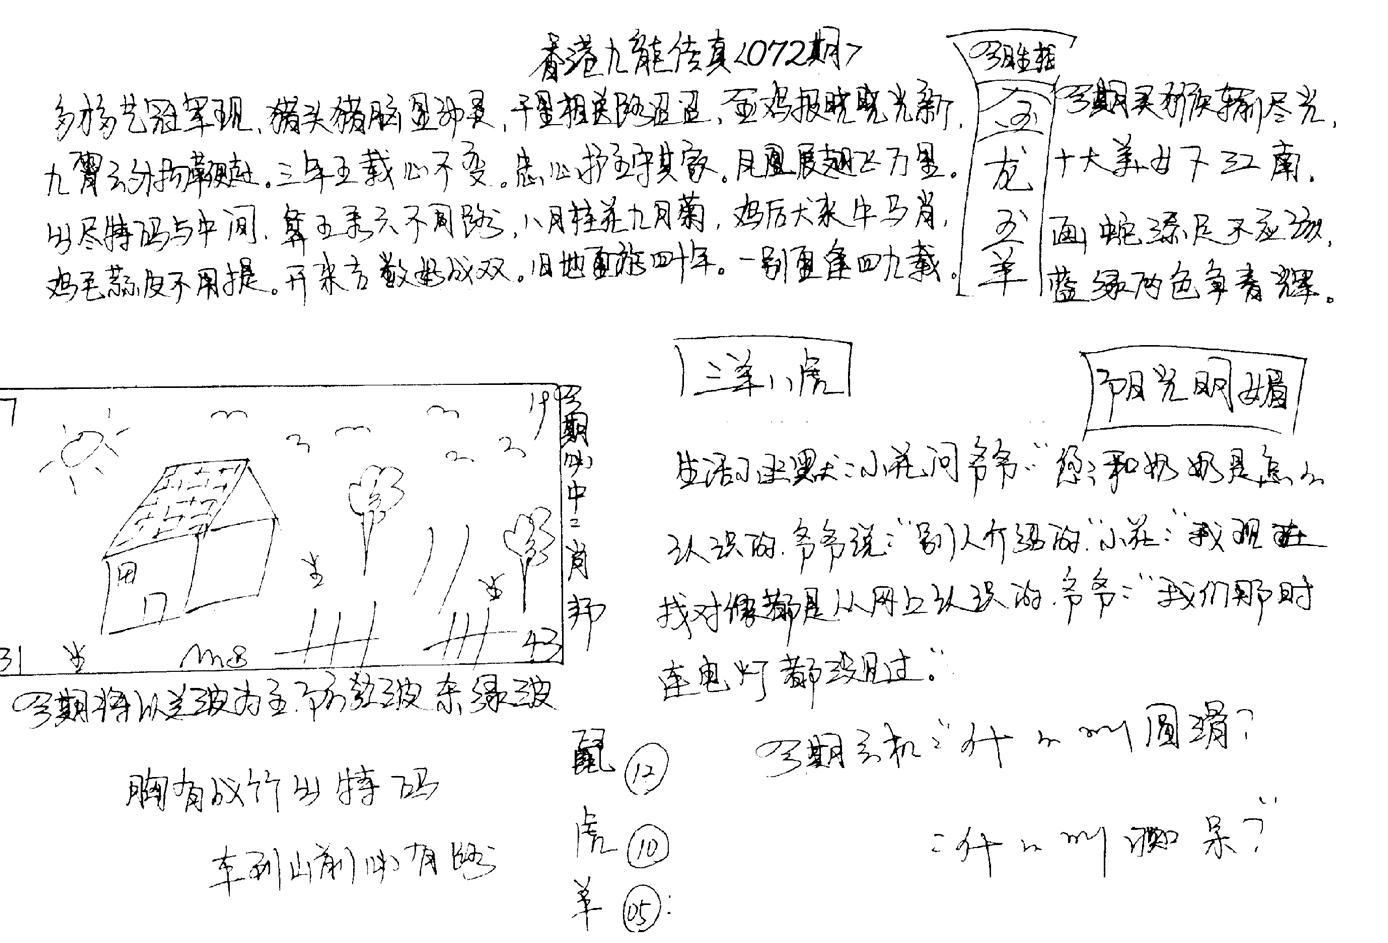 香港九龍传真<072期>
多才多艺冠军现,猪头猪脑显神灵,千里相关路迢迢,金鸡报晓晓光新,
九霄云外扬鞭赶。三年五载心不变。忠心护主守其家。凤凰展翅飞万里。
出尽特码与中间,单五乘六不同路,八月桂花九月菊,鸡后犬来牛马肖,
鸡毛蒜皮不用提。开来吉数成双。旧地重游四十年。一别重逢四九载。
今期生肖
金
龙
玉
羊
今期买猴输尽光,
十大美女下江南.
画蛇添足不应该,
蓝绿两色争春辉。
三羊八虎
阳光明媚
7
19
31
43
M8
今期必中二肖那
生活小幽默:小花问爷爷:“您和奶奶是怎么
认识的.爷爷说:“别人介绍的”小花:“我现在
找对像都是从网上认识的.爷爷:“我们那时
连电灯都没见过。”
今期将以兰波为主.防红波杀绿波
今期玄机:“什么叫圆滑?
:什么叫呆?”
胸有成竹出特码
车到山前必有路
鼠 12
虎 10
羊 05: